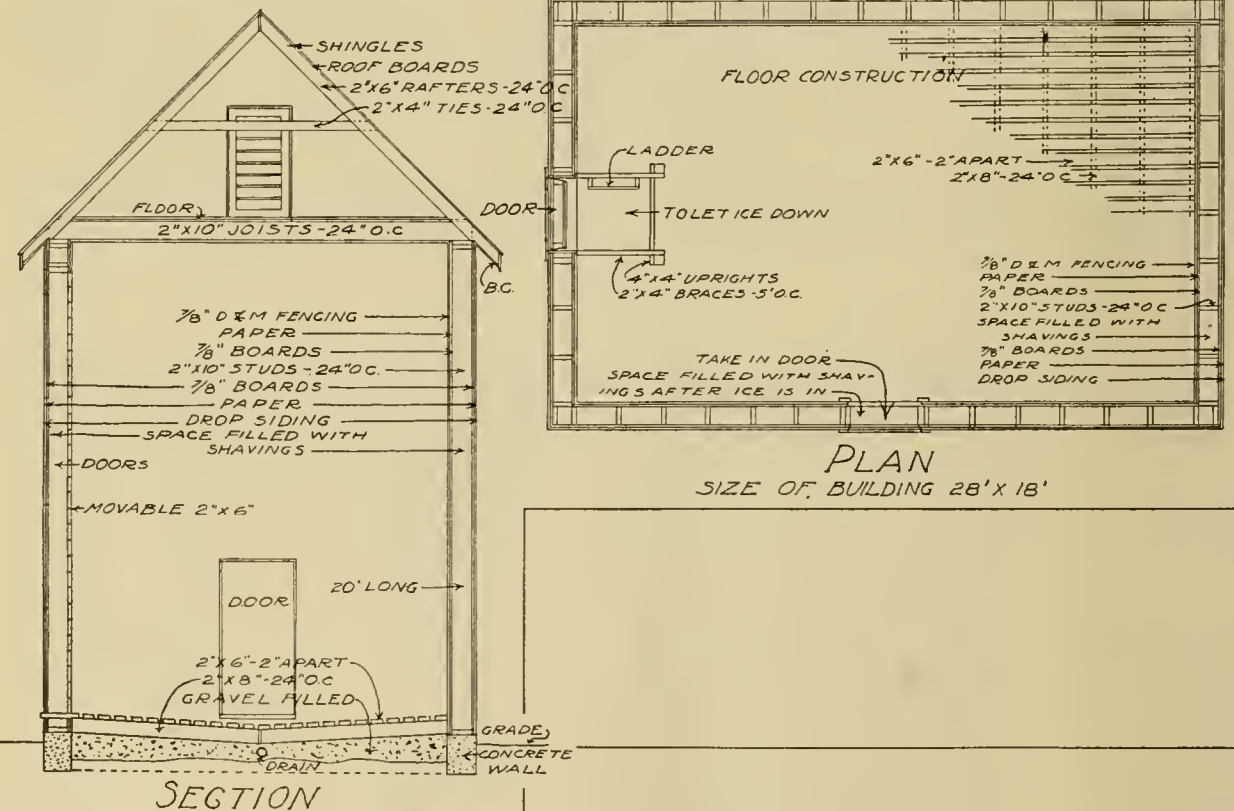 SHINGLES
ROOF BOARDS
2"X6" RAFTERS-24"O.C
2"X4" TIES-24"O.C
FLOOR
2"X10" JOISTS-24"O.C
B.C.
7/8" D & M FENCING
PAPER
7/8" BOARDS
2"X10" STUDS-24"O.C.
7/8" BOARDS
PAPER
DROP SIDING
SPACE FILLED WITH
SHAVINGS
DOORS
MOVABLE 2"X6"
20' LONG
DOOR
2"X6"-2"APART
2"X8"-24"O.C
GRAVEL FILLED
GRADE
CONCRETE
WALL
DRAIN
SECTION
FLOOR CONSTRUCTION
LADDER
2"X6"-2"APART
2"X8"-24"O C
DOOR
TO LET ICE DOWN
4"X4" UPRIGHTS
2"X4" BRACES-5'O.C.
7/8" D & M FENCING
PAPER
7/8" BOARDS
2"X10" STUDS-24"O C
SPACE FILLED WITH
SHAVINGS
7/8" BOARDS
PAPER
DROP SIDING
TAKE IN DOOR
SPACE FILLED WITH SHAV-
INGS AFTER ICE IS IN
PLAN
SIZE OF BUILDING 28' X 18'